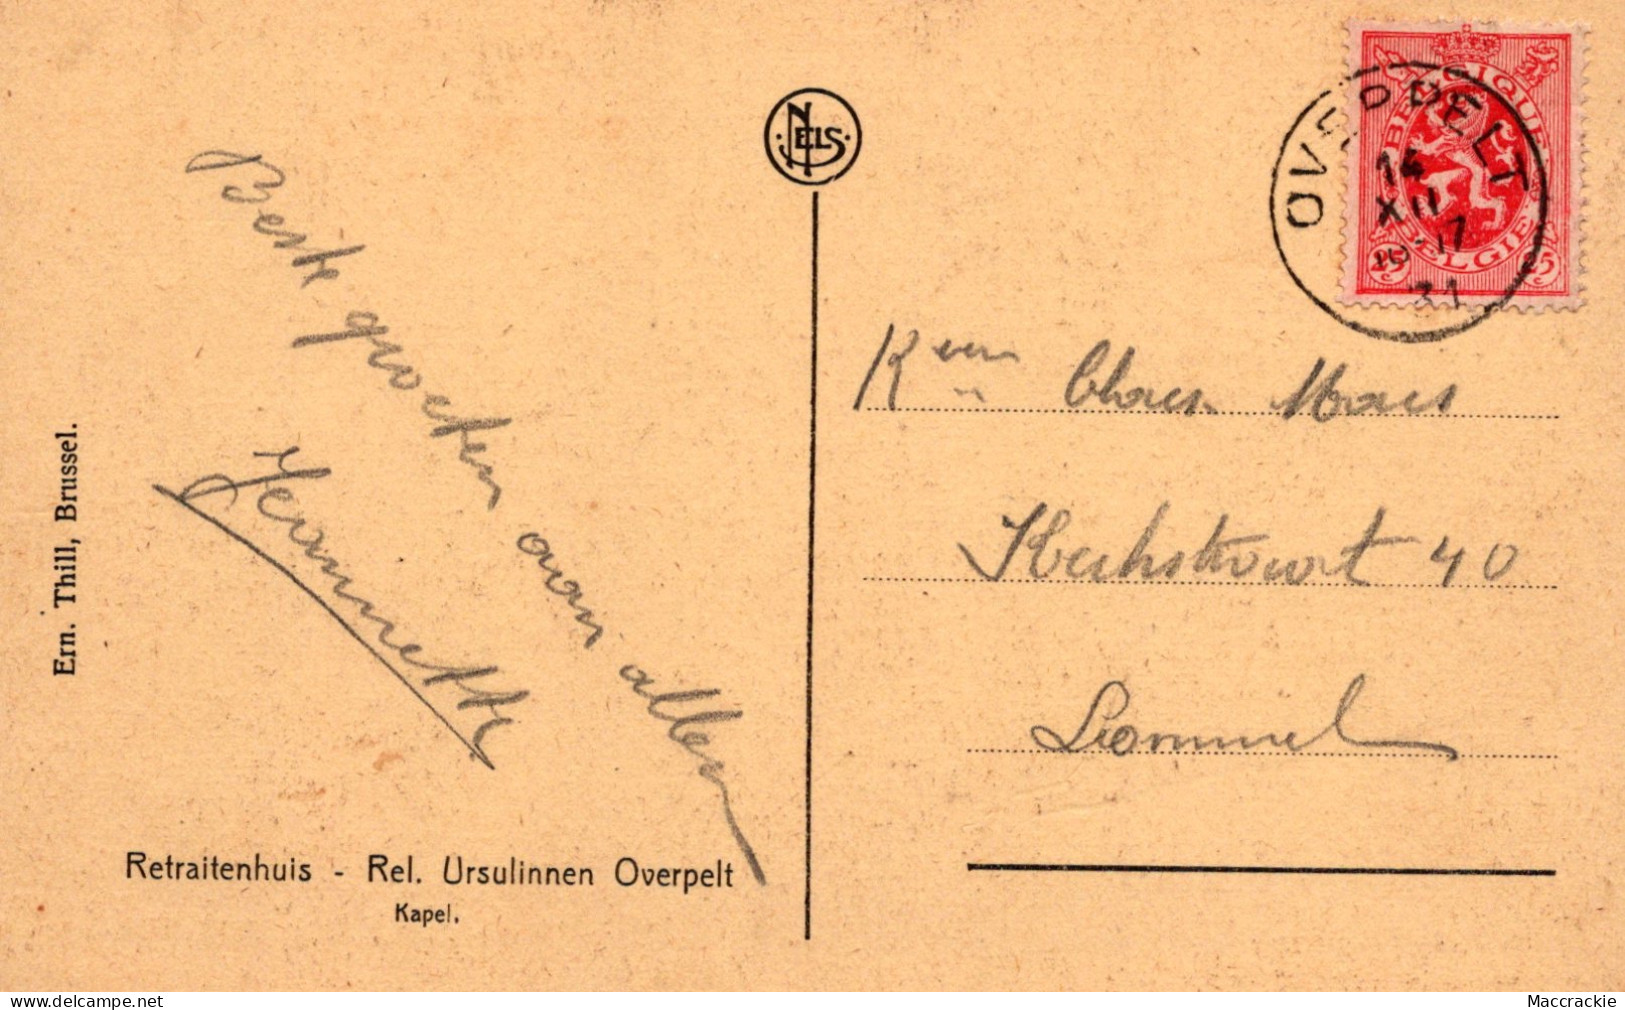 Beste groeten aan allen
Jeannette
Ern. Thill, Brussel.
Retraitenhuis - Rel. Ursulinnen Overpelt
Kapel.
NELS
BELGIQUE
BELGIE
25 25
OVERPELT
14
XII
16-17
31
Claes Maes
40
Lommel
delcampe.net
Maccrackie